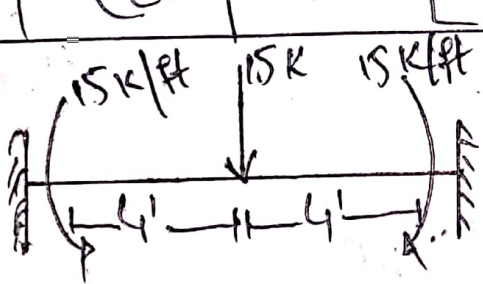 15K/ft 15K 15K/ft
4' 4'